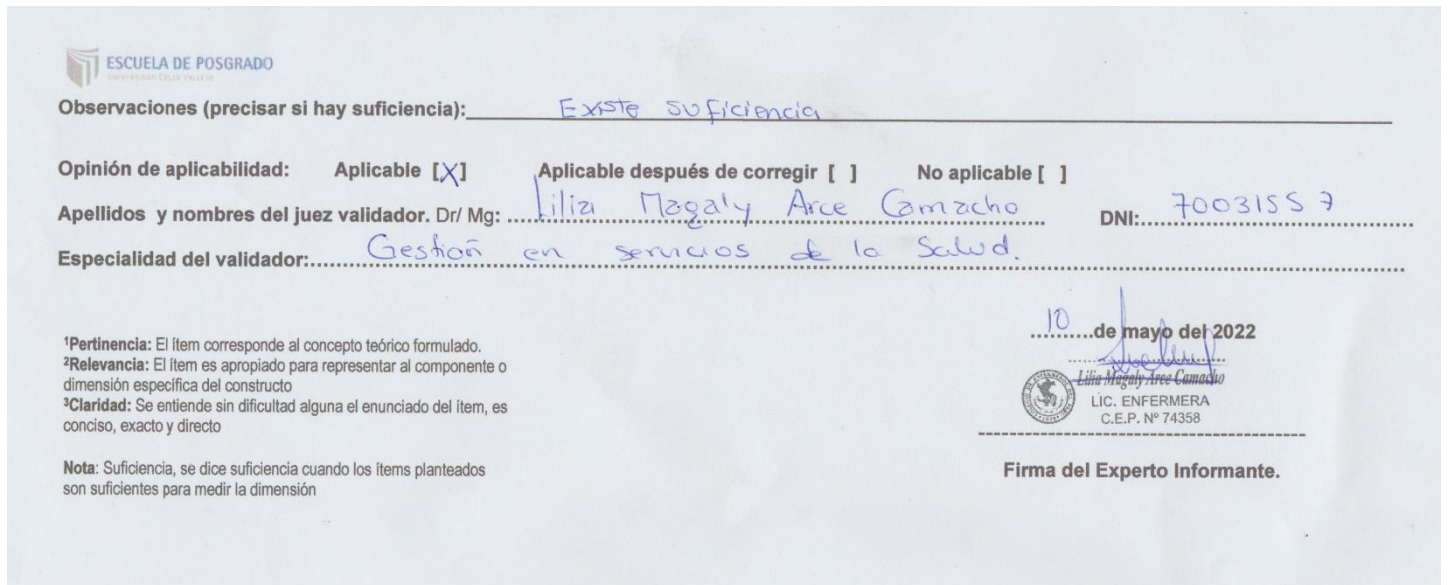 ESCUELA DE POSGRADO
UNIVERSIDAD CÉSAR VALLEJO
Observaciones (precisar si hay suficiencia): Existe suficiencia
Opinión de aplicabilidad: Aplicable [X] Aplicable después de corregir [ ] No aplicable [ ]
Apellidos y nombres del juez validador. Dr/ Mg: Lilia Magaly Arce Camacho DNI: 70031557
Especialidad del validador: Gestión en servicios de la Salud.
10 de mayo del 2022
¹Pertinencia: El ítem corresponde al concepto teórico formulado.
²Relevancia: El ítem es apropiado para representar al componente o
dimensión específica del constructo
³Claridad: Se entiende sin dificultad alguna el enunciado del ítem, es
conciso, exacto y directo
Lilia Magaly Arce Camacho
LIC. ENFERMERA
C.E.P. Nº 74358
Nota: Suficiencia, se dice suficiencia cuando los ítems planteados
son suficientes para medir la dimensión
Firma del Experto Informante.